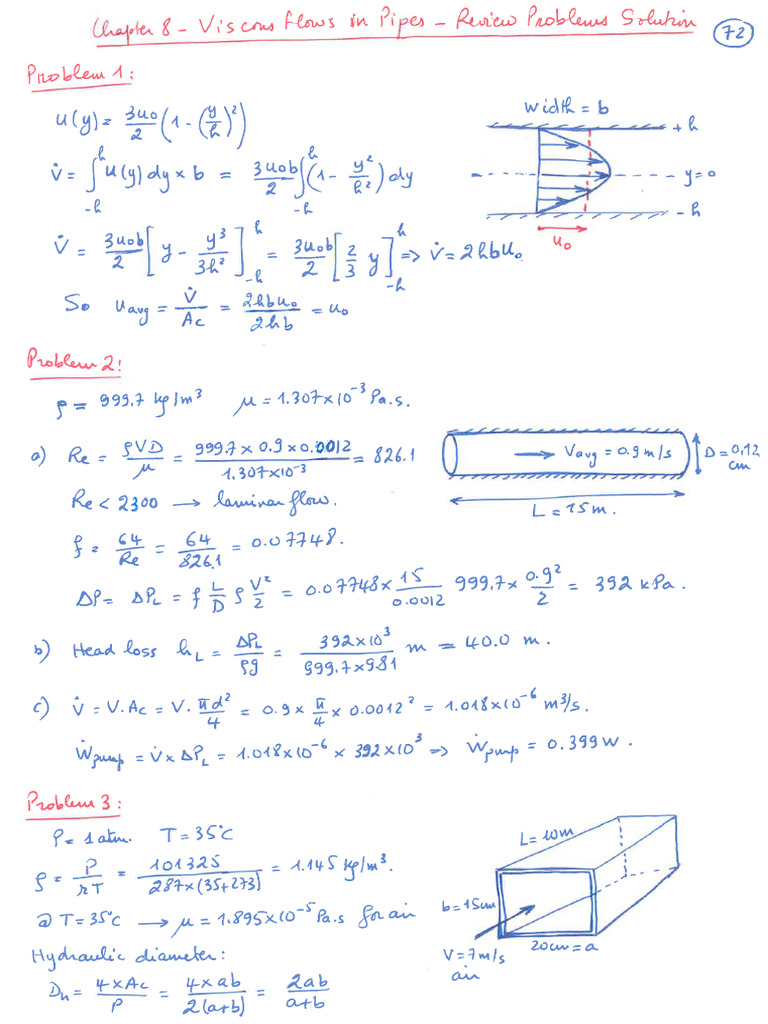 Chapter 8 - Viscous flows in Pipes - Review Problems Solution
72
Problem 1:
u(y) = 3u₀/2 (1 - (y/h)²)
V̇ = ∫₋ₕʰ u(y) dy × b = 3u₀b/2 ∫₋ₕʰ (1 - y²/h²) dy
V̇ = 3u₀b/2 [y - y³/3h²]₋ₕʰ = 3u₀b/2 [2/3 y]₋ₕʰ => V̇ = 2hbu₀
So u_avg = V̇/Ac = 2hbu₀/2hb = u₀
width = b
+h
y=0
-h
u₀
Problem 2:
ρ = 999.7 kg/m³ μ = 1.307×10⁻³ Pa.s.
a) Re = ρVD/μ = 999.7 × 0.9 × 0.0012 / 1.307×10⁻³ = 826.1
Re < 2300 → laminar flow.
f = 64/Re = 64/826.1 = 0.07748.
ΔP = ΔP_L = f L/D ρ V²/2 = 0.07748 × 15/0.0012 999.7 × 0.9²/2 = 392 kPa.
V_avg = 0.9 m/s
D = 0.12
cm
L = 15 m.
b) Head loss h_L = ΔP_L/ρg = 392×10³ / 999.7×9.81 m = 40.0 m.
c) V̇ = V.Ac = V. πd²/4 = 0.9 × π/4 × 0.0012² = 1.018×10⁻⁶ m³/s.
Ẇ_pump = V̇ × ΔP_L = 1.018×10⁻⁶ × 392×10³ => Ẇ_pump = 0.399 W.
Problem 3:
P = 1 atm. T = 35°C
ρ = P/rT = 101325 / 287×(35+273) = 1.145 kg/m³.
@ T = 35°C → μ = 1.895×10⁻⁵ Pa.s for air
Hydraulic diameter:
D_h = 4×Ac/P = 4×ab / 2(a+b) = 2ab / a+b
L = 10m
b = 15cm
20cm = a
V = 7m/s
air